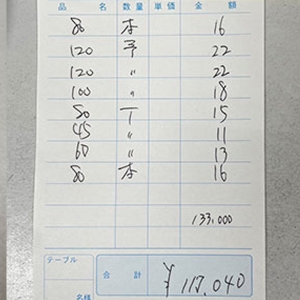 品 名 数量 単価 金 額
80 本 16
120 予 22
120 〃 22
100 〃 18
80 丁 15
45 〃 11
60 〃 13
80 本 16
133,000
テーブル
名様
合 計 ¥117,040